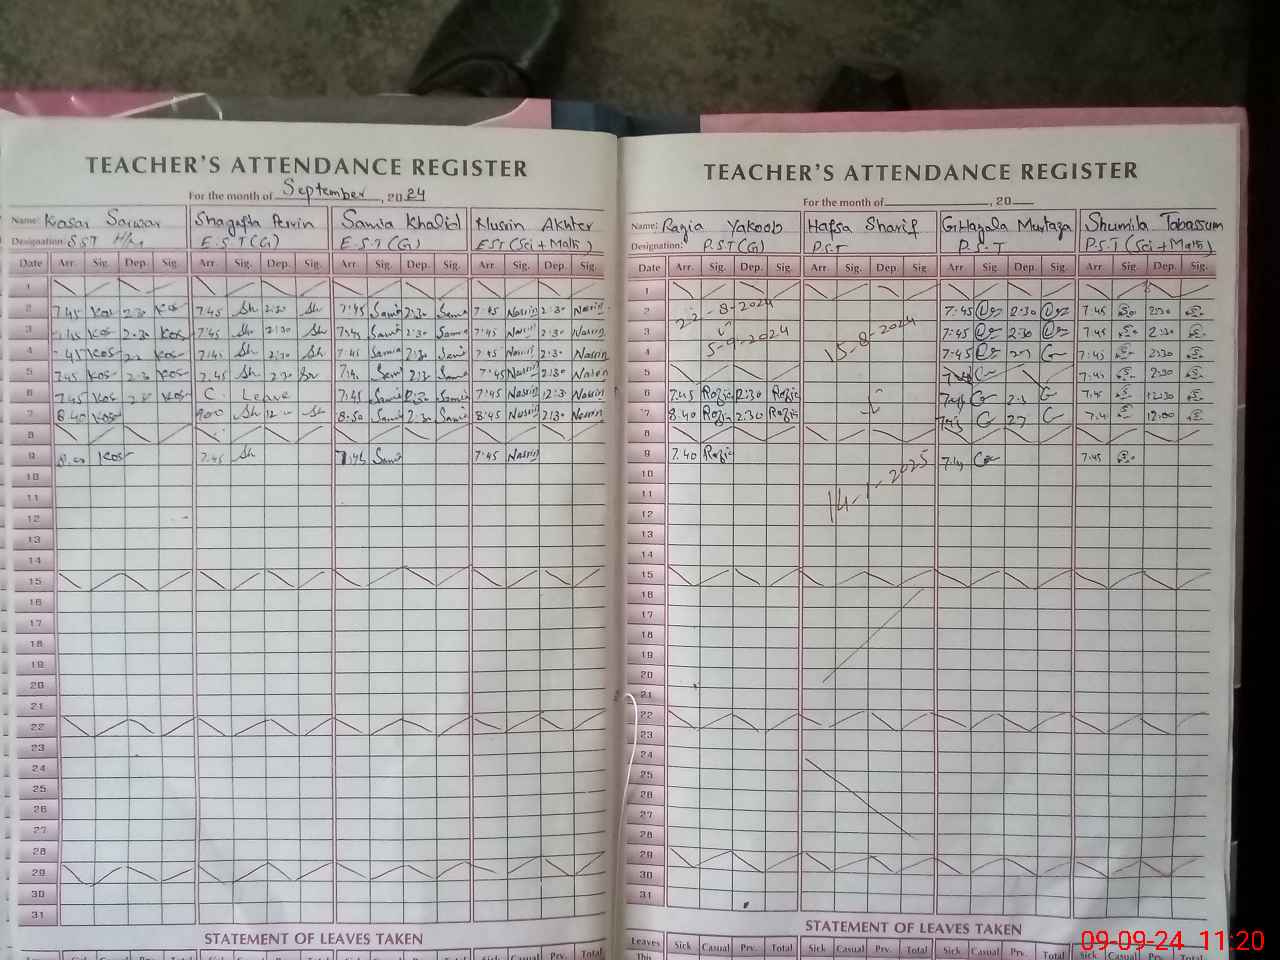 TEACHER'S ATTENDANCE REGISTER
For the month of September, 2024
Name: Kosar Sarwar Shagufta Pervin Samia Khalid Nusrin Akhter
Designation: SST H/M E.S.T(G) E.S.T(G) EST(Sci+Math)
Date Arr. Sig. Dep. Sig. Arr. Sig. Dep. Sig. Arr. Sig. Dep. Sig. Arr. Sig. Dep. Sig.
1
2 7.45 Kos 2.30 Kos 7.45 Sh 2:30 Sh 7:45 Sami 2:30 Sami 7:45 Nasrin 2:30 Nasrin
3 7.45 Kos 2.30 Kos 7.45 Sh 2:30 Sh 7:45 Sami 2:30 Sami 7:45 Nasrin 2:30 Nasrin
4 Kos Kos 7:45 Sh 2:30 Sh 7:45 Samia 2:30 Sami 7:45 Nasrin 2:30 Nasrin
5 7.45 Kos 2.3 Kos 7.45 Sh 2:30 Sami Sami 7:45 Nasrin 2:30 Nasrin
6 7.45 Kos Kos C. Leave 7:45 Sami 12:30 Sami 7:45 Nasrin 12:3 Nasrin
7 8.40 Kos 9:00 Sh 12:00 Sh 8:50 Sami 2:30 Sami 8:45 Nasrin 2:30 Nasrin
8
9 Kos 7.45 Sh 7:45 Sami 7:45 Nasrin
10
11
12
13
14
15
16
17
18
19
20
21
22
23
24
25
26
27
28
29
30
31
STATEMENT OF LEAVES TAKEN
Sick Casual Prv. Total Sick Casual Prv. Total
TEACHER'S ATTENDANCE REGISTER
For the month of , 20
Name: Razia Yakoob Hafsa Sharif GHazala Murtaza Shumila Tabassum
Designation: P.S.T(G) P.S.T P.S.T P.S.T(Sci+Math)
Date Arr. Sig. Dep. Sig. Arr. Sig. Dep. Sig. Arr. Sig. Dep. Sig. Arr. Sig. Dep. Sig.
1
2 22-8-2024 7:45 2:30 7:45 2:30
3 5-9-2024 15-8-2024 7:45 2:30 7:45 2:30
4 7:45 7:45 2:30
5 7:45 2:30
6 7.45 Razia 2:30 Razia 7:45 12:30
7 8.40 Razia 2:30 Razia 7:45 12:00
8
9 7.40 Razia 7:45
10
11 14-1-2025
12
13
14
15
16
17
18
19
20
21
22
23
24
25
26
27
28
29
30
31
STATEMENT OF LEAVES TAKEN
Leaves Sick Casual Prv. Total Sick Casual Prv. Total Sick Casual Prv. Total Sick Casual
This
09-09-24 11:20